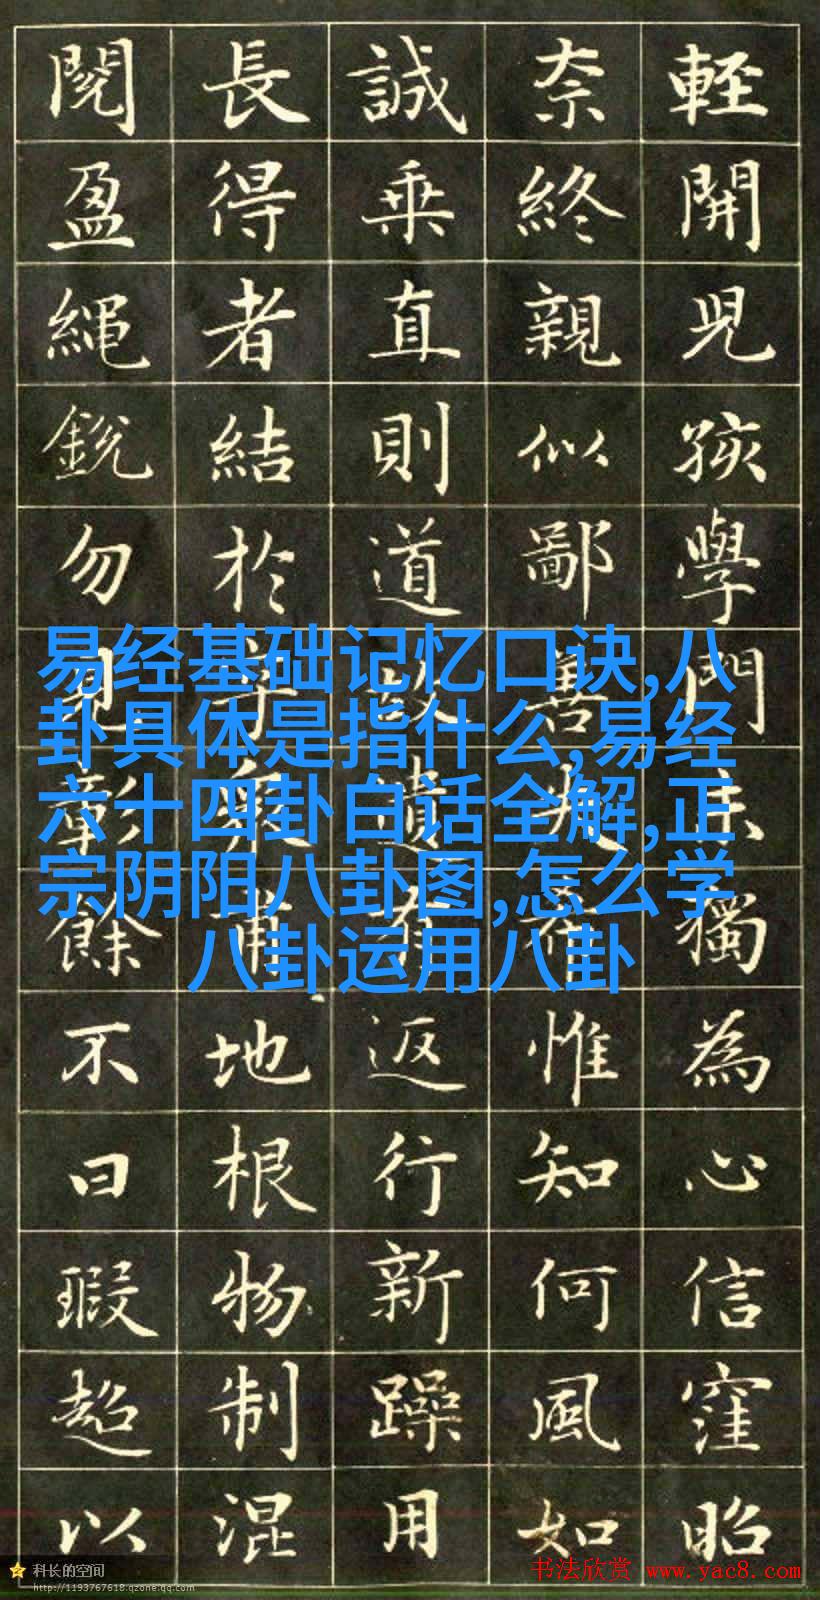 閱 長 誠 奈 輕
盈 得 乘 終 開
繩 者 直 親 児
銳 結 則 似 孩
勿 於 道 鄙 學
門
獨
餘
不 地 返 惟 為
曰 根 行 知 心
瑕 物 新 何 信
超 制 躁 風 窪
以 混 用 如 昭
易经基础记忆口诀,八
卦具体是指什么,易经
六十四卦白话全解,正
宗阴阳八卦图,怎么学
八卦运用八卦
科长的空间
http://1193767618.qzone.qq.com
书法欣赏 www.yac8.com